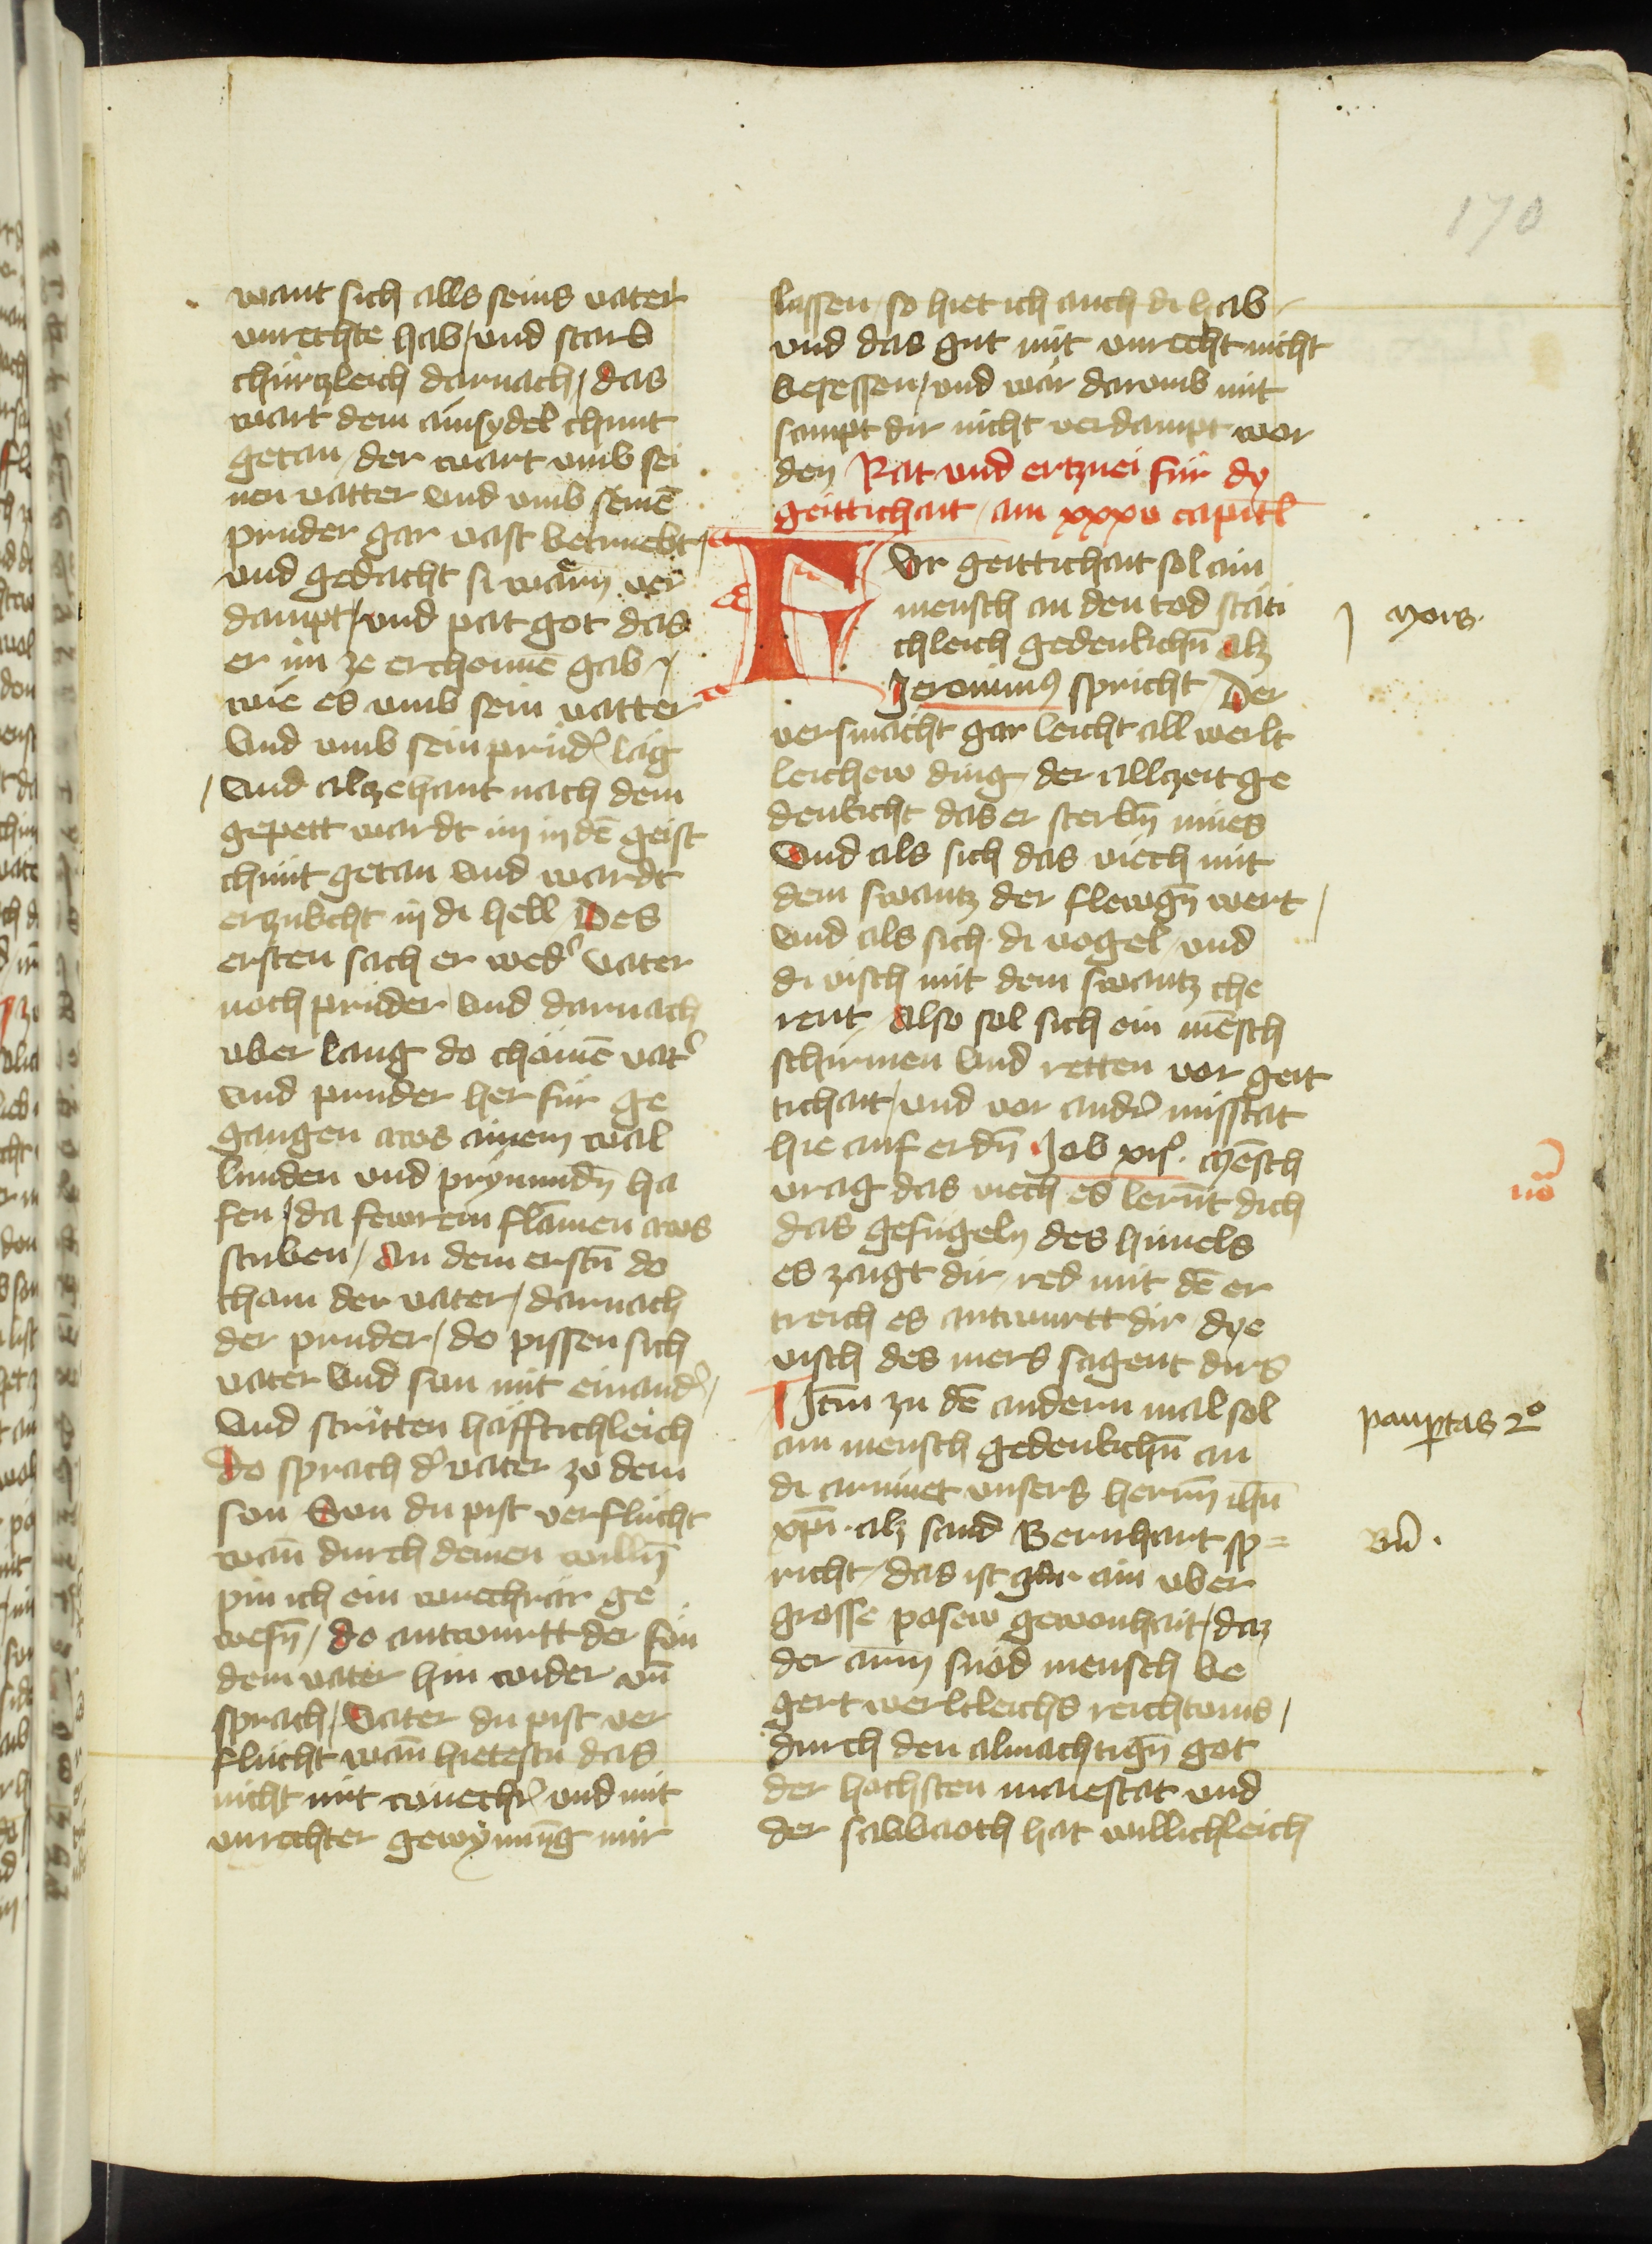 170
want sich alls seins vater
vnrechte hab / vnd starb
chürtzleich darnach / das
wart dem ainsydel chunt
getan / der wart vmb sei
nen vatter vnd vmb seinē
pruder gar vast betruebt /
vnd gedacht si wärn ver
dampt / vnd pat got das
er im ze erchennē gab /
wie es vmb sein vatter
Vnd vmb sein prud᷑ läg
/ Vnd alzehant nach dem
gepett wardt im in dē geist
chunt getan vnd wardt
erzukcht in di hell Des
ersten sach er wed᷑ vater
noch pruder vnd darnach
vber lang do chömē vat᷑
vnd pruder her für ge
gangen aws ainem wal
lunden vnd prynnundn̄ ha
fen / da fewrein flāmen aws
stuben / An dem erstn̄ do
cham der vater / darnach
der pruder / do pissen sich
vater vnd sun mit einand᷑ /
Vnd stritten häfftichleich
Do sprach d᷑ vater zu dem
sun Sun du pist verflucht
wan̄ durch deinen willn̄
pin ich ein wuechrär ge
wesn̄ / do antwurtt der sun
dem vater hin wider vn̄
sprach / Vater du pist ver
flucht wan̄ hietestu das
nicht mit wuech᷑ vnd mit
vnrechter gewynnūg mir
lassen / so hiet ich auch di hab /
vnd das gut mit vnrecht nicht
besessen / vnd wär darvmb mit
sampt dir nicht verdampt wor
den Rat vnd ertznei für dy
geittichait / am xxxv capitl
FVr geittichait sol ain
mensch an den tod stäti
chleich gedenkchn̄ Alz
Jeronimꝰ spricht / Der
versmächt gar leicht all werlt
leichew ding / der allzeit ge
denkcht das er sterbn̄ mües
Vnd als sich das viech mit
dem swantz der flewgn̄ wert /
vnd als sich di vogel / vnd
di visch mit dem swantz che
rent / Also sol sich ein mēsch
schirmen vnd retten vor geit
tichait / vnd vor and᷑ misstat
hie auf erdn̄ Job xijº. Mēsch
vrag das viech es lernt̄ dich
das gefugeln des himels
es zaigt dir / red mit dē er
treich es antwurtt dir / dye
visch des mers sagent dirs
Jtm̄ zu dē andern mal sol
ain mensch gedenkchn̄ an
di armuet vnsers herrn̄ ihū
xp̄i. alz sand Bernhart sp=
richt / das ist gar ain vber
grosse posew gewonhait / daz
der arm̄ snöd mensch be
gert werltleichs reichtums /
durch den almächtign̄ got
der höchsten maiestat vnd
der sabbaoth hat willichleich
j mors.
no᷑
paup̄tas 2º
Bn̄.